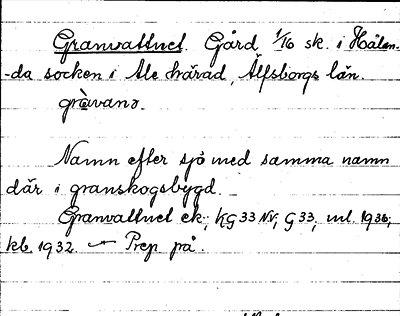 Granvattnet. Gård 1/16 sk. i Hålan-
-da socken i Ale härad, Älfsborgs län.
gràvanə.
Namn efter sjö med samma namn
där i granskogsbygd.
Granvattnet ek, KG 33 NV, G 33, uul. 1936,
kb. 1932. — Prep på.